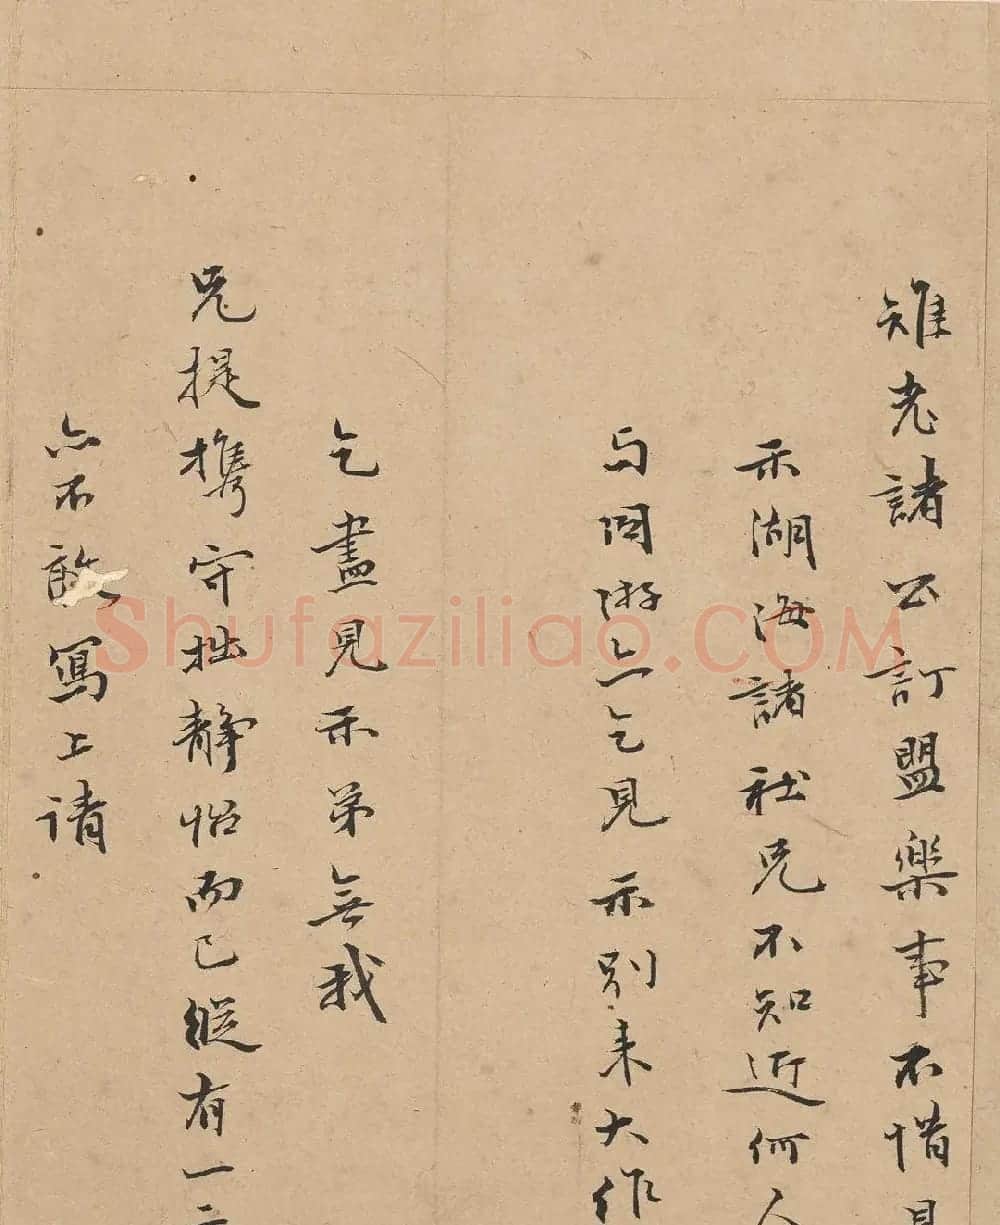 雉老諸公訂盟樂事不惜見
示湖海諸社兄不知近何人
与同游亦乞見示别来大作
乞盡見示弟無我
兄提携守拙静怡而已縱有一二
亦不敢寫上请
Shufaziliao.COM